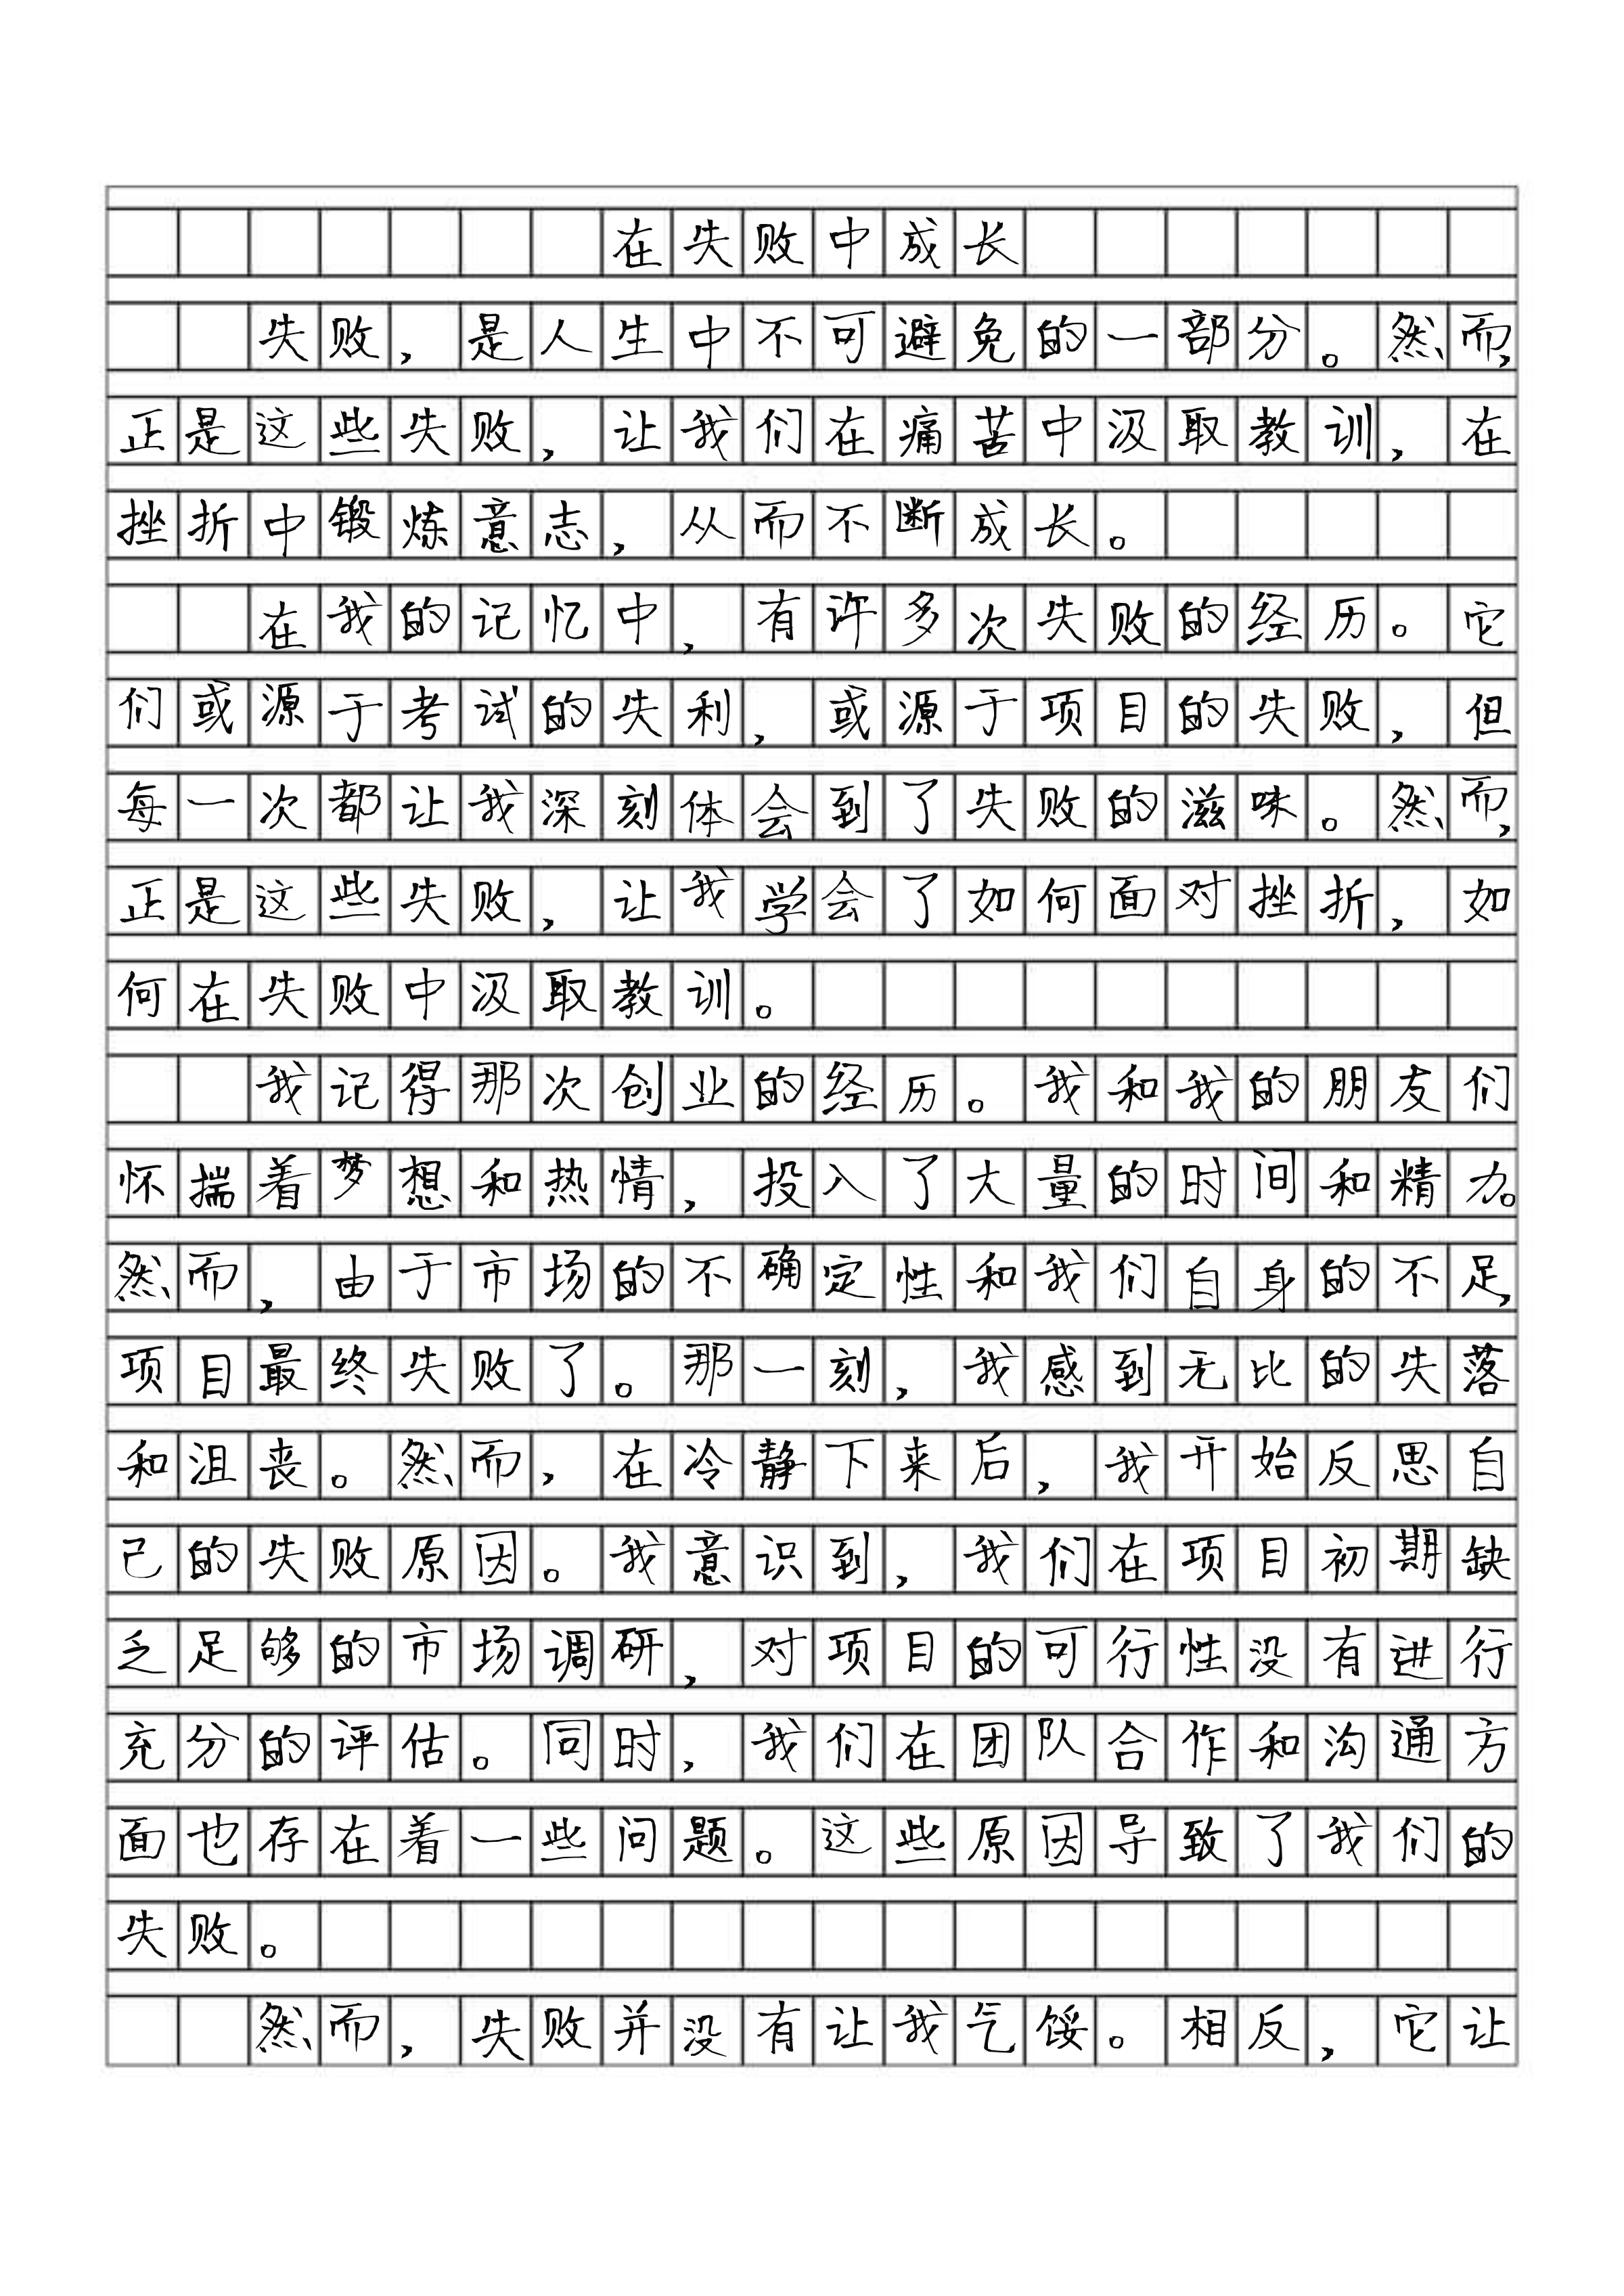 在失败中成长
失败，是人生中不可避免的一部分。然而，
正是这些失败，让我们在痛苦中汲取教训，在
挫折中锻炼意志，从而不断成长。
在我的记忆中，有许多次失败的经历。它
们或源于考试的失利，或源于项目的失败，但
每一次都让我深刻体会到了失败的滋味。然而，
正是这些失败，让我学会了如何面对挫折，如
何在失败中汲取教训。
我记得那次创业的经历。我和我的朋友们
怀揣着梦想和热情，投入了大量的时间和精力。
然而，由于市场的不确定性和我们自身的不足，
项目最终失败了。那一刻，我感到无比的失落
和沮丧。然而，在冷静下来后，我开始反思自
己的失败原因。我意识到，我们在项目初期缺
乏足够的市场调研，对项目的可行性没有进行
充分的评估。同时，我们在团队合作和沟通方
面也存在着一些问题。这些原因导致了我们的
失败。
然而，失败并没有让我气馁。相反，它让